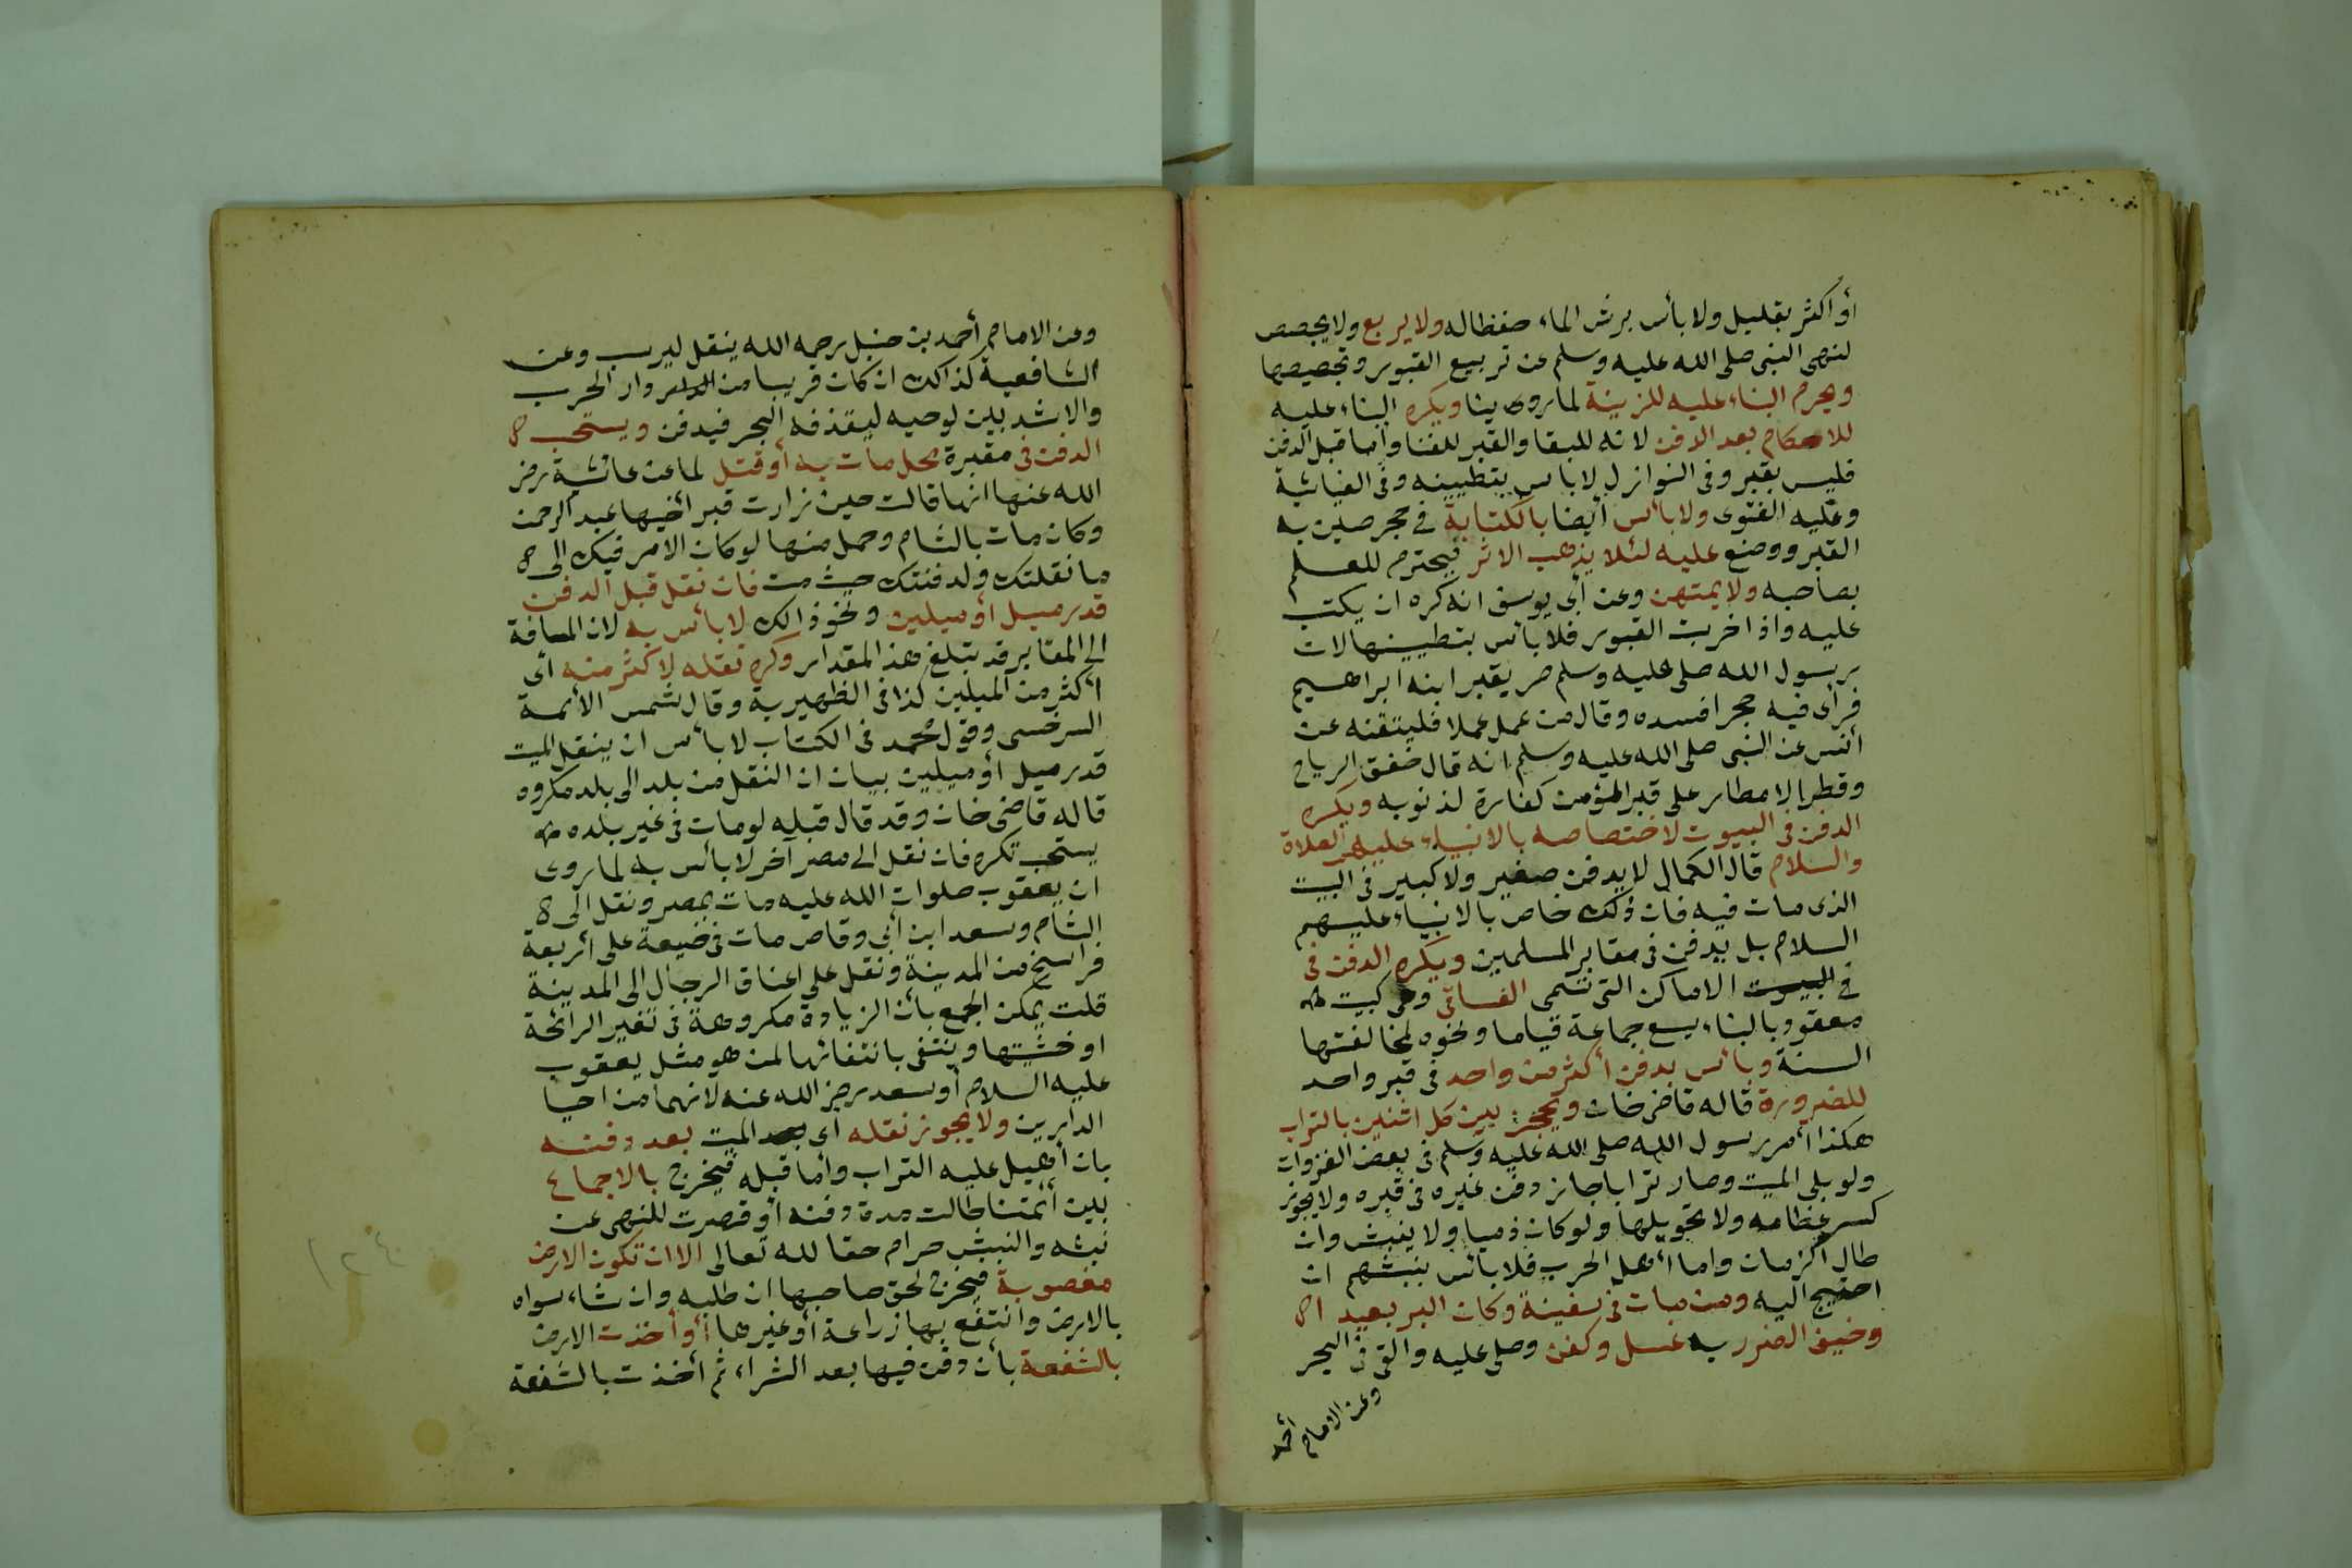 أو اكثر بقليل ولا بأس برش الماء حفظا له ولا يربع ولا يجصص
لنهى النبى صلى الله عليه وسلم عن تربيع القبور وتجصيصها
ويحرم البناء عليه للزينة لما روى ينا ويكره البناء عليه
للاحكام بعد الدفن لانه للبقا والقبر للفنا وأما قبل الدفن
فليس بقبر وفى النوازل لا باس بتطيينه وفى الغياثية
وعليه الفتوى ولا بأس أيضا بالكتابة في حجر صين به
القبر ووضع عليه لئلا يذهب الاثر فيحترم للعلم
بصاحبه ولا يمتهن وعن أبى يوسف انه كره ان يكتب
عليه واذا خربت القبور فلا بأس بتطيينها لان
رسول الله صلى عليه وسلم مر بقبر ابنه ابراهيم
فرأى فيه حجرا فسده وقال من عمل عملا فليتقنه عن
أنس عن النبى صلى الله عليه وسلم انه قال خفق الرياح
وقطر الامطار على قبر المؤمن كفارة لذنوبه ويكره
الدفن فى البيوت لاختصاصه بالانبياء عليهم الصلاة
والسلام قال الكمال لا يدفن صغير ولا كبير فى البيت
الذى مات فيه فان ذلك خاص بالانبياء عليهم
السلام بل يدفن فى مقابر المسلمين ويكره الدفن فى
في البيوت الاماكن التى تسمى الفساقى وهى كبيت
معقود بالبناء يسع جماعة قياما ونحوه لمخالفتها
السنة وبأس بدفن أكثر من واحد في قبر واحد
للضرورة قاله قاضى خان ويحجز بين كل اثنين بالتراب
هكذا أمر رسول الله صلى الله عليه وسلم فى بعض الغزوات
ولو بلى الميت وصار ترابا جاز دفن غيره فى قبره ولا يجوز
كسر عظامه ولا تحويلها ولو كان ذميا ولا ينبش وان
طال الزمان واما أهل الحرب فلا بأس بنبشهم ان
احتيج اليه ومن مات فى سفينة وكان البر بعيدا
وخيف الضرر به غسل وكفن وصلى عليه والقى فى البحر
وعن الامام أحمد
وعن الامام أحمد بن حنبل رحمه الله يثقل ليرسب وعن
الشافعية كذالك ان كان قريبا من دار الحرب
والا شد بين لوحين ليقذفه البحر فيدفن ويستحب
الدفن فى مقبرة محل مات به أو قتل لما عن عائشة رضى
الله عنها انها قالت حين زارت قبر أخيها عبد الرحمن
وكان مات بالشام وحمل منها لو كان الامر فيك الى
ما نقلتك ولدفنتك حيث مت فان نقل قبل الدفن
قدر ميل أو ميلين ونحو ذالك لا بأس به لان المسافة
الى المقابر قد تبلغ هذا المقدار وكره نقله لاكثر منه اى
أكثر من الميلين كذا فى الظهيرية وقال شمس الأئمة
السرخسى وقول محمد فى الكتاب لا بأس ان ينقل الميت
قدر ميل أو ميلين بيان ان النقل من بلد الى بلد مكروه
قاله قاضى خان وقد قال قبله لو مات فى غير بلده
يستحب تركه فان نقل الى مصر آخر لا بأس به لما روى
ان يعقوب صلوات الله عليه مات بمصر ونقل الى
الشام وسعد ابن أبى وقاص مات فى ضيعة على أربعة
فراسخ من المدينة ونقل على اعناق الرجال الى المدينة
قلت يمكن الجمع بأن الزيادة مكروهة فى تغير الرائحة
او خشيتها وينتفى بانتفائها لمن هو مثل يعقوب
عليه السلام أو سعد رضى الله عنه لانهما من احيا
الدارين ولا يجوز نقله أى الميت بعد دفنه
بان أهيل عليه التراب وأما قبله فيخرج بالاجماع
بين أئمتنا طالت مدة دفنه أو قصرت للنهى عن
نبشه والنبش حرام حقا لله تعالى الا ان تكون الارض
مغصوبة فيخرج لحق صاحبها ان طلبه وان شاء سواه
بالارض وانتفع بها زراعة أو غيرها أو أخذت الارض
بالشفعة بأن دفن فيها بعد الشراء ثم أخذت بالشفعة